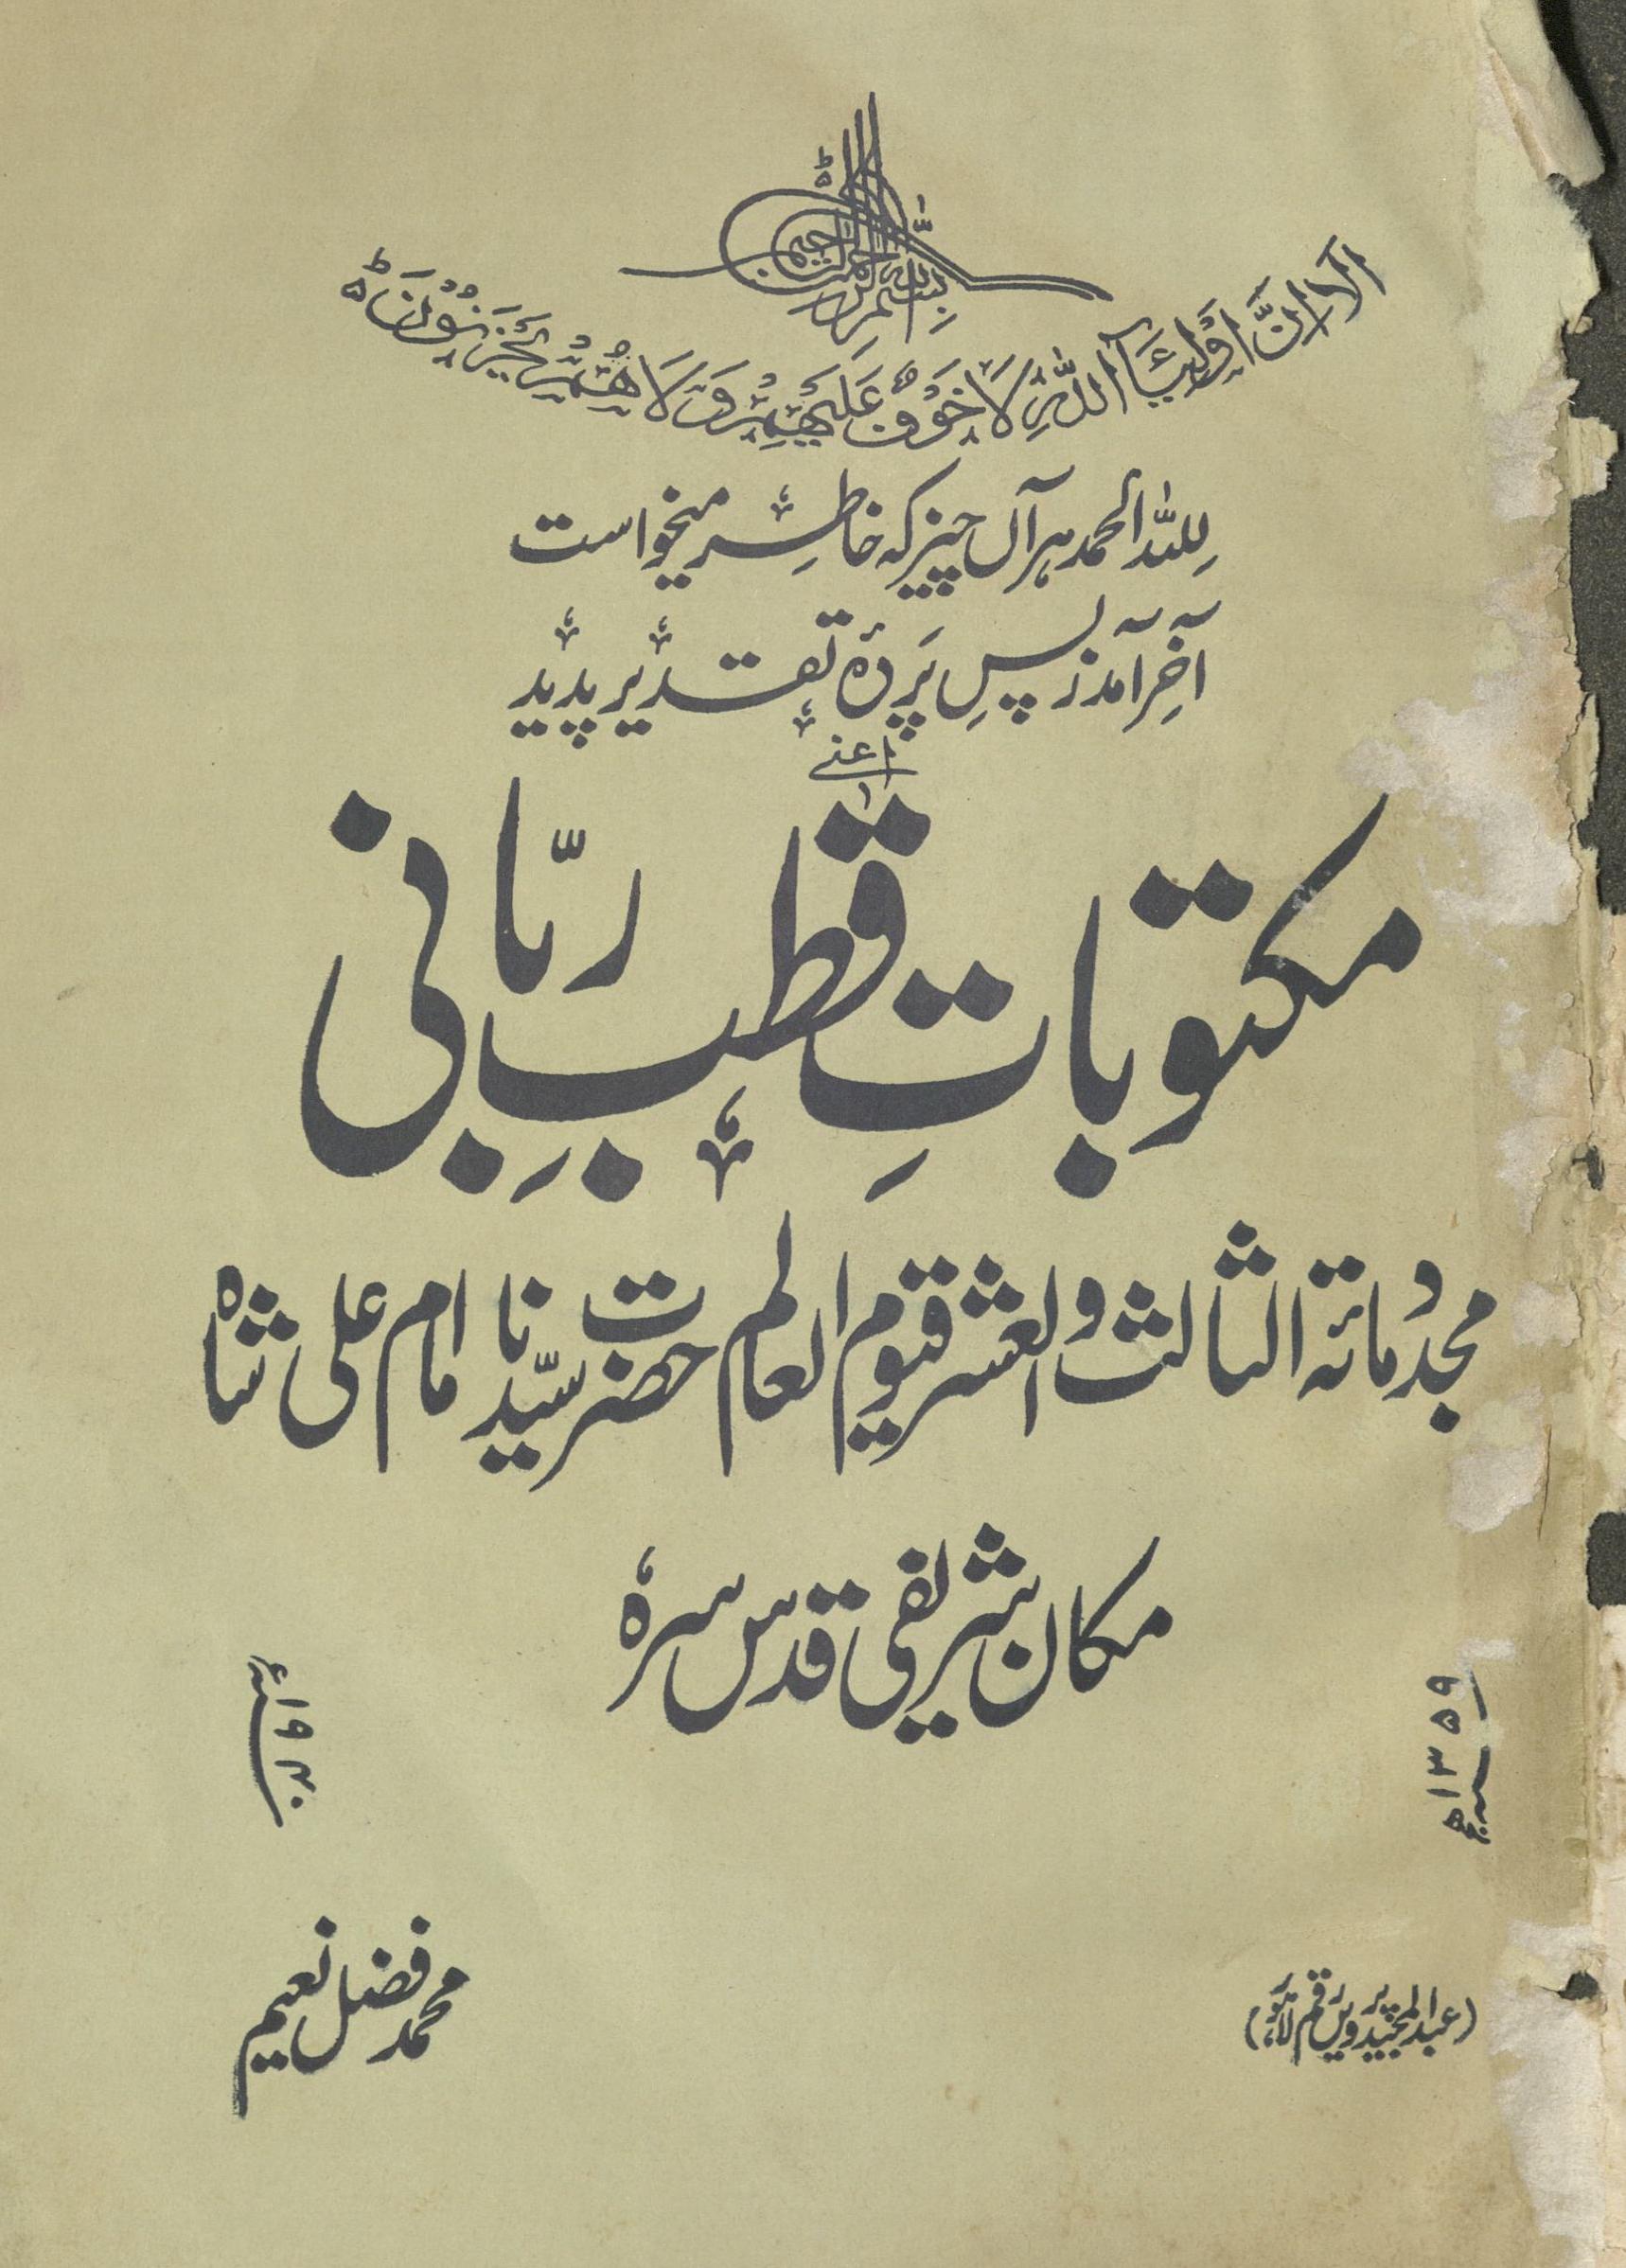 بِسْمِ اللّٰهِ الرَّحْمٰنِ الرَّحِيْمِ ط
اَلَا اِنَّ اَوْلِيَآءَ اللّٰهِ لَا خَوْفٌ عَلَيْهِمْ وَلَا هُمْ يَحْزَنُوْنَ ط
لِلّٰہ الحمد ہر آں چیز کہ خاطر میخواست
آخِر آمد ز پسِ پَردۂ تقدیر پدید
اعنے
مکتوباتِ قطبِ ربّانی
مجدد مائۃ الثالث والعشر قیوم العالم حضرت سیّدنا امام علی شاہ
مکان شریفی قدس سرہٗ
۱۳۵۹ھ
۱۹۴۰ء
محمد فضل نعیم
(عبدالمجید پرویں رقم لاہور)